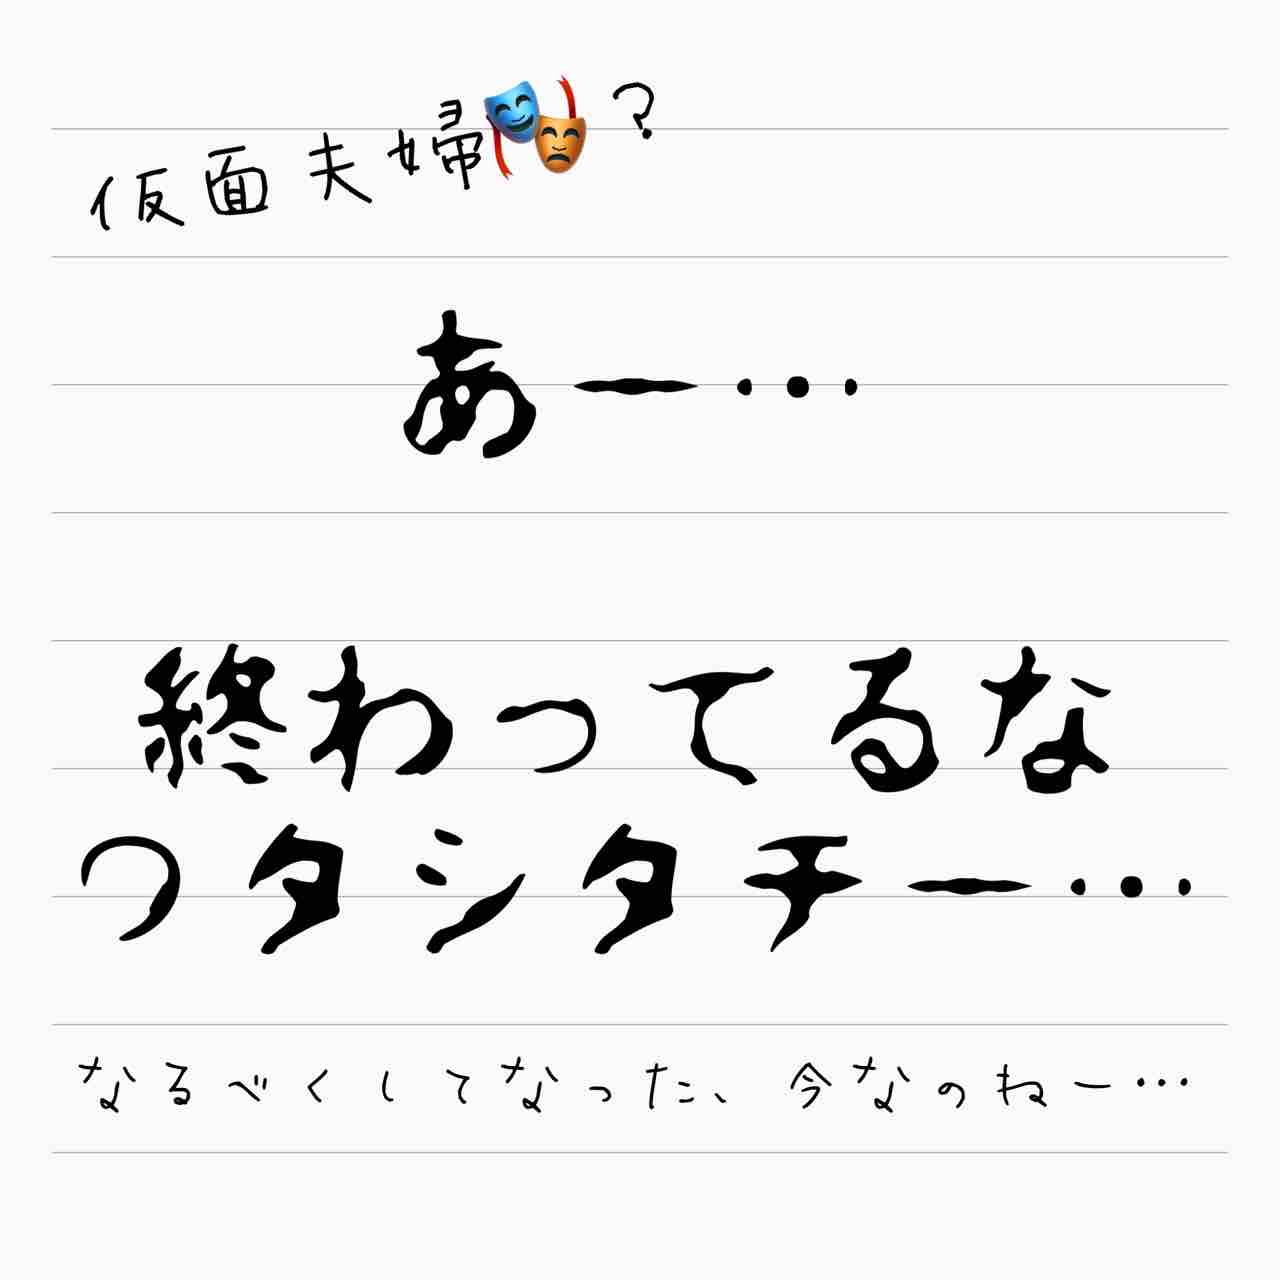 仮面夫婦🎭?
あー…
終わってるな
ワタシタチー…
なるべくしてなった、今なのねー…